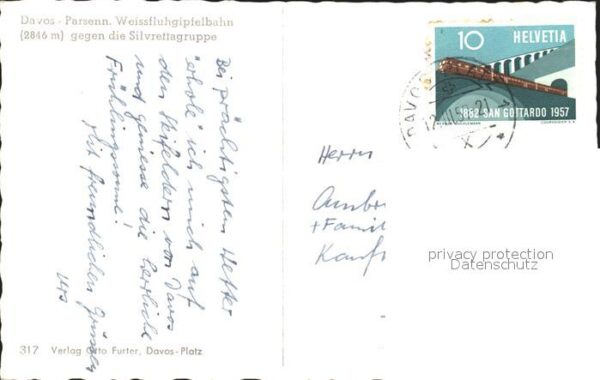 Davos - Parsenn. Weissfluhgipfelbahn
(2846 m) gegen die Silvrettagruppe
Bei prächtigstem Wetter
"erhole" ich mich auf
den Skifeldern von Davos
und geniesse die herrliche
Frühlingssonne!
Mit freundlichen Grüssen
Urs
317 Verlag Otto Furter, Davos-Platz
10 HELVETIA
1882 SAN GOTTARDO 1957
DAVOS
Herrn
+ Famil
privacy protection
Datenschutz